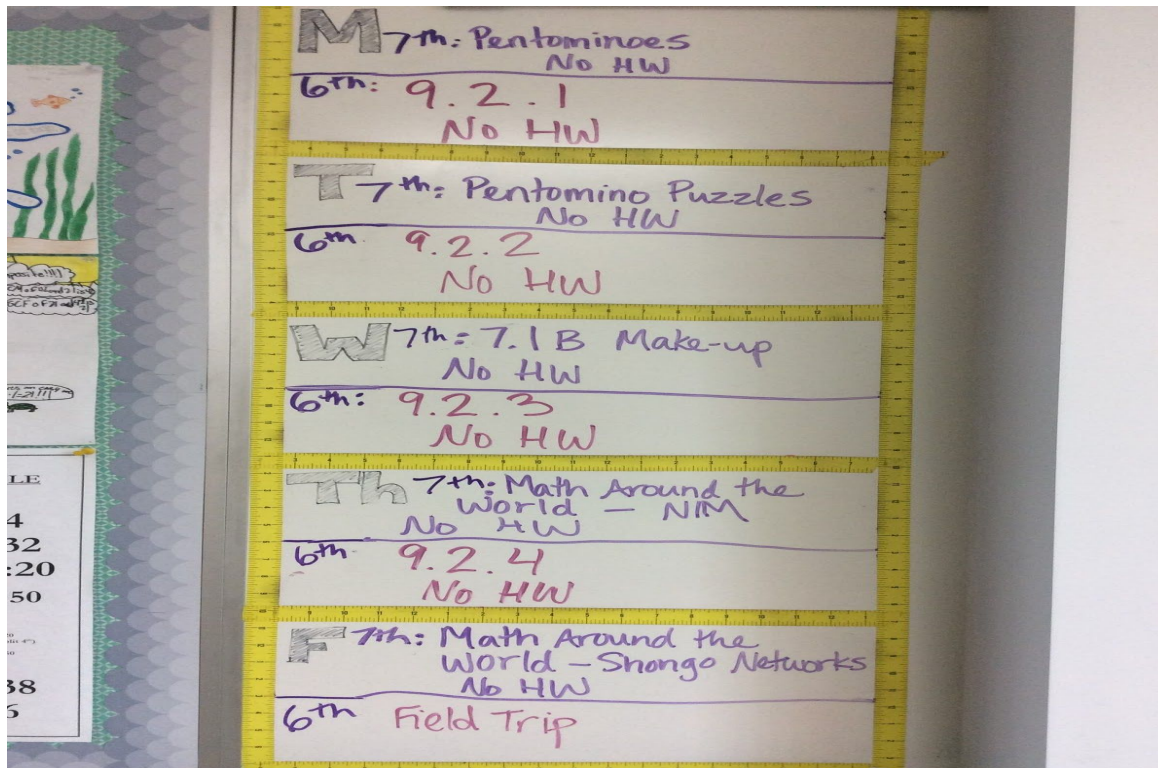 M 7th: Pentominoes
No HW
6th: 9.2.1
No HW
T 7th: Pentomino Puzzles
No HW
6th 9.2.2
No HW
W 7th: 7.1B Make-up
No HW
6th: 9.2.3
No HW
Th 7th: Math Around the
World - NIM
No HW
6th 9.2.4
No HW
F 7th: Math Around the
World - Shongo Networks
No HW
6th Field Trip
LE
4
32
:20
50
38
6